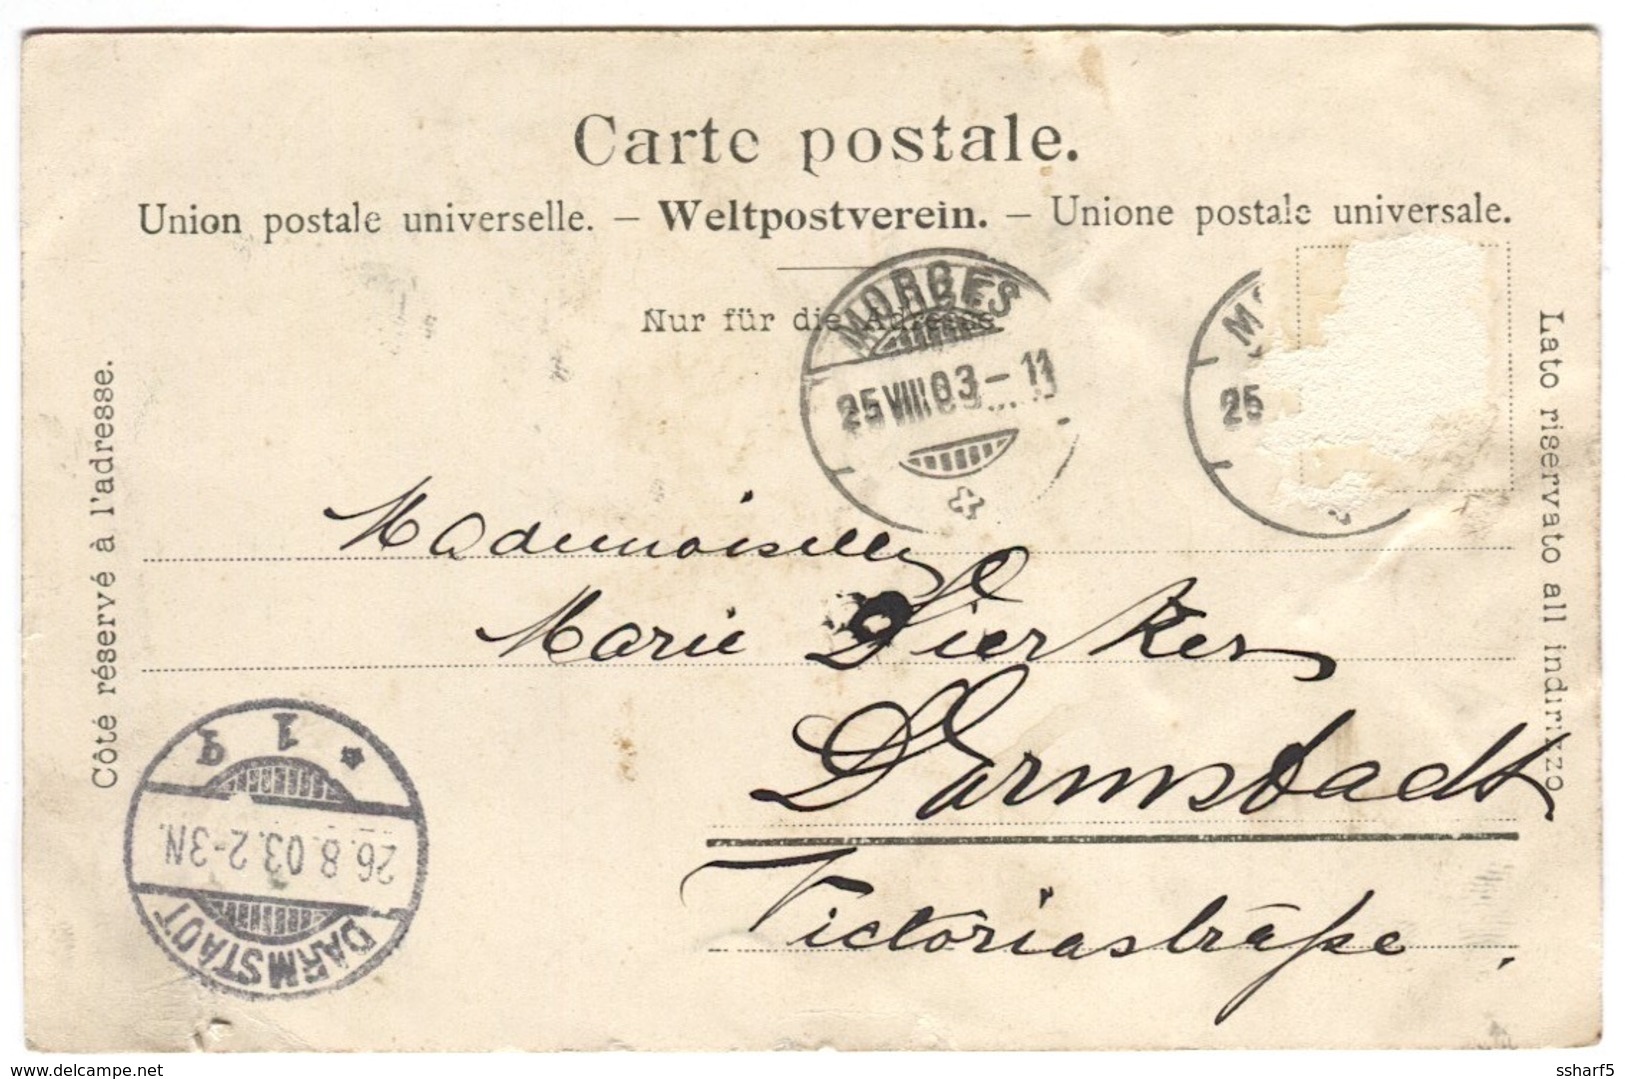 Carte postale.
Union postale universelle. – Weltpostverein. – Unione postale universale.
Nur für die Adresse
MORGES
25 VIII 03 – 11
25
Côté réservé à l'adresse.
Lato riservato all indirizzo
Mademoiselle
Marie Dierkes
Darmstadt
Victoriastraße.
DARMSTADT
26.8.03.2-3N.
* 1 q
delcampe.net
ssharf5